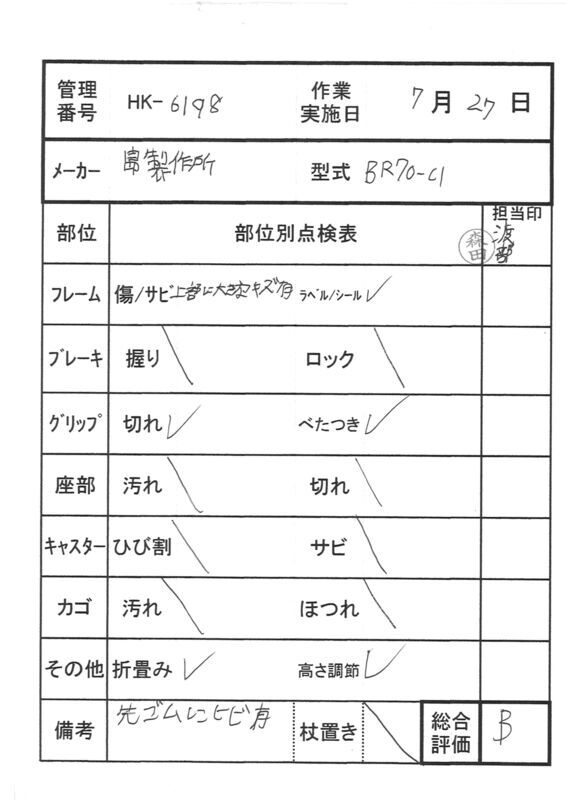 管理番号 HK-6198 作業実施日 7月27日
メーカー 畠製作所 型式 BR70-C1
部位 部位別点検表 担当印 渡部 森田
フレーム 傷/サビ 上部に大きなキズ有 ラベル/シール ✓
ブレーキ 握り \ ロック \
グリップ 切れ ✓ べたつき ✓
座部 汚れ \ 切れ \
キャスター ひび割 \ サビ \
カゴ 汚れ \ ほつれ \
その他 折畳み ✓ 高さ調節 ✓
備考 先ゴムにヒビ有 杖置き \ 総合評価 B